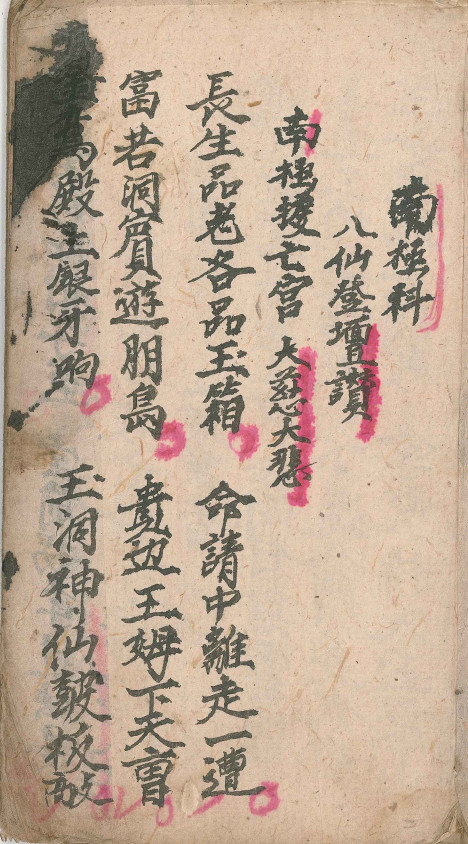 南極科
八仙登壇讚
南極援亡宮 大慈大悲
長生品老各品玉箱 命請中離走一遭
富若洞賓遊朋島 邊王姆下天曹
殿上銀牙响 玉洞神仙皷板敲